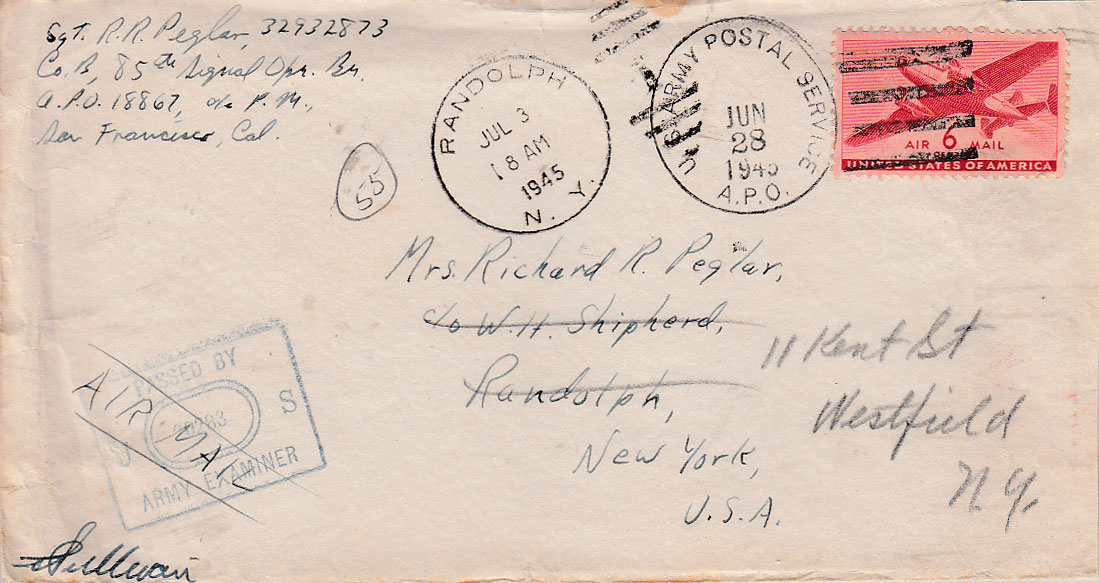 Sgt. R.R. Peglar, 32932873
Co. B, 85th Signal Opr. Bn.
A.P.O. 18867, c/o P.M.,
San Francisco, Cal.
RANDOLPH
JUL 3
8 AM
1945
N. Y.
U.S. ARMY POSTAL SERVICE
JUN
28
1945
A.P.O.
AIR 6 MAIL
UNITED STATES OF AMERICA
55
Mrs. Richard R. Peglar,
c/o W.H. Shipherd,
Randolph,
New York,
U.S.A.
11 Kent St
Westfield
N.Y.
PASSED BY
U S
ARMY EXAMINER
AIR MAIL
Sullivan